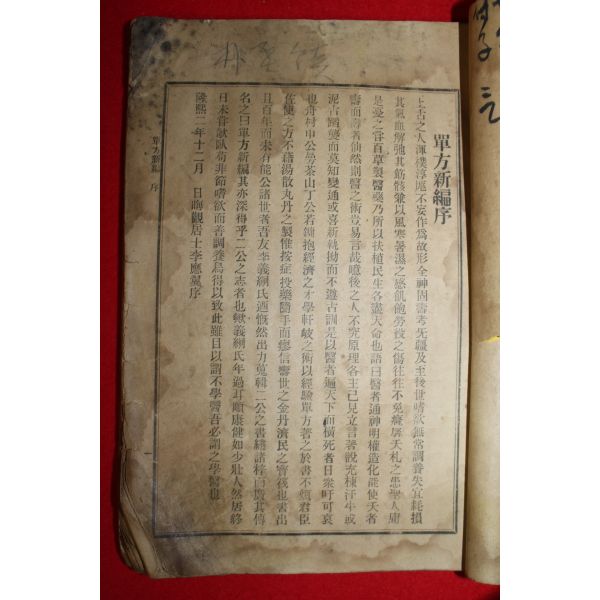 單方新編序
上古之人渾樸淳厖不妄作為故形全神固壽考无疆及至後世嗜欲無常調養失宜耗損
其氣血解弛其筋骸兼以風寒暑濕之感飢飽勞役之傷往往不免癈孱夭札之患聖人庸
是憂之甞百草製醫藥乃所以扶植民生各盡天命也語曰醫者通神明權造化能使夭者
壽而壽者仙然則醫之術豈易言哉噫後之人不究原理各主己見立言著說充棟汗牛或
泥古蹈襲而莫知變通或喜新執拗而不遵古訓是以醫者遍天下而橫死者日衆吁可哀
也舟村申公曁茶山丁公若鏞抱經濟之才學軒岐之術以經驗單方著之於書不煩君臣
佐使之方不藉湯散丸丹之製惟按症投藥應手而瘳信壽世之金丹濟民之寶筏也書出
且百年而未有能公諸世者吾友李義絅氏迺慨然出力蒐輯二公之書繡諸梓而廣其傳
名之曰單方新編其亦深得乎二公之志者也歟義絅氏年過耳順康健如少壯人然居終
日未甞欹臥苟非節嗜欲而善調養烏得以致此雖曰以謂不學醫吾必謂之學醫也
隆熙二年十二月 日晦觀居士李應翼序
單方新編 序